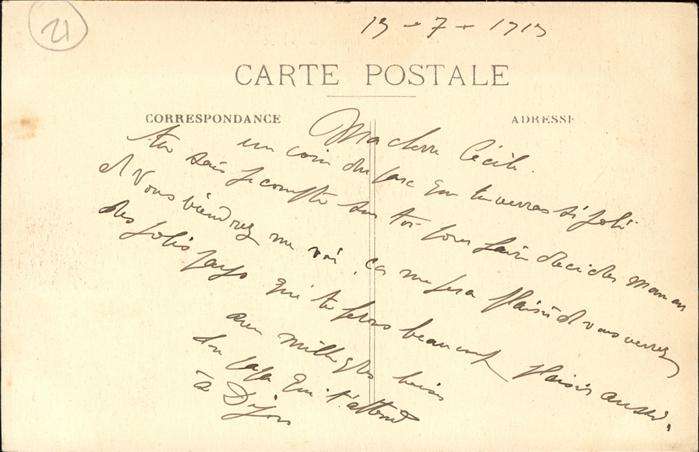 21
13 - 7 - 1913
CARTE POSTALE
CORRESPONDANCE
ADRESSE
Ma chère Cécile
un coin du parc que tu verras si joli
tu sais je compte sur toi pour faire décider maman
et vous viendrez me voir, ça me fera plaisir et vous verrez
des jolis pays qui te feront beaucoup plaisir aussi.
mille gros baisers
du papa qui t'attend
à Dijon